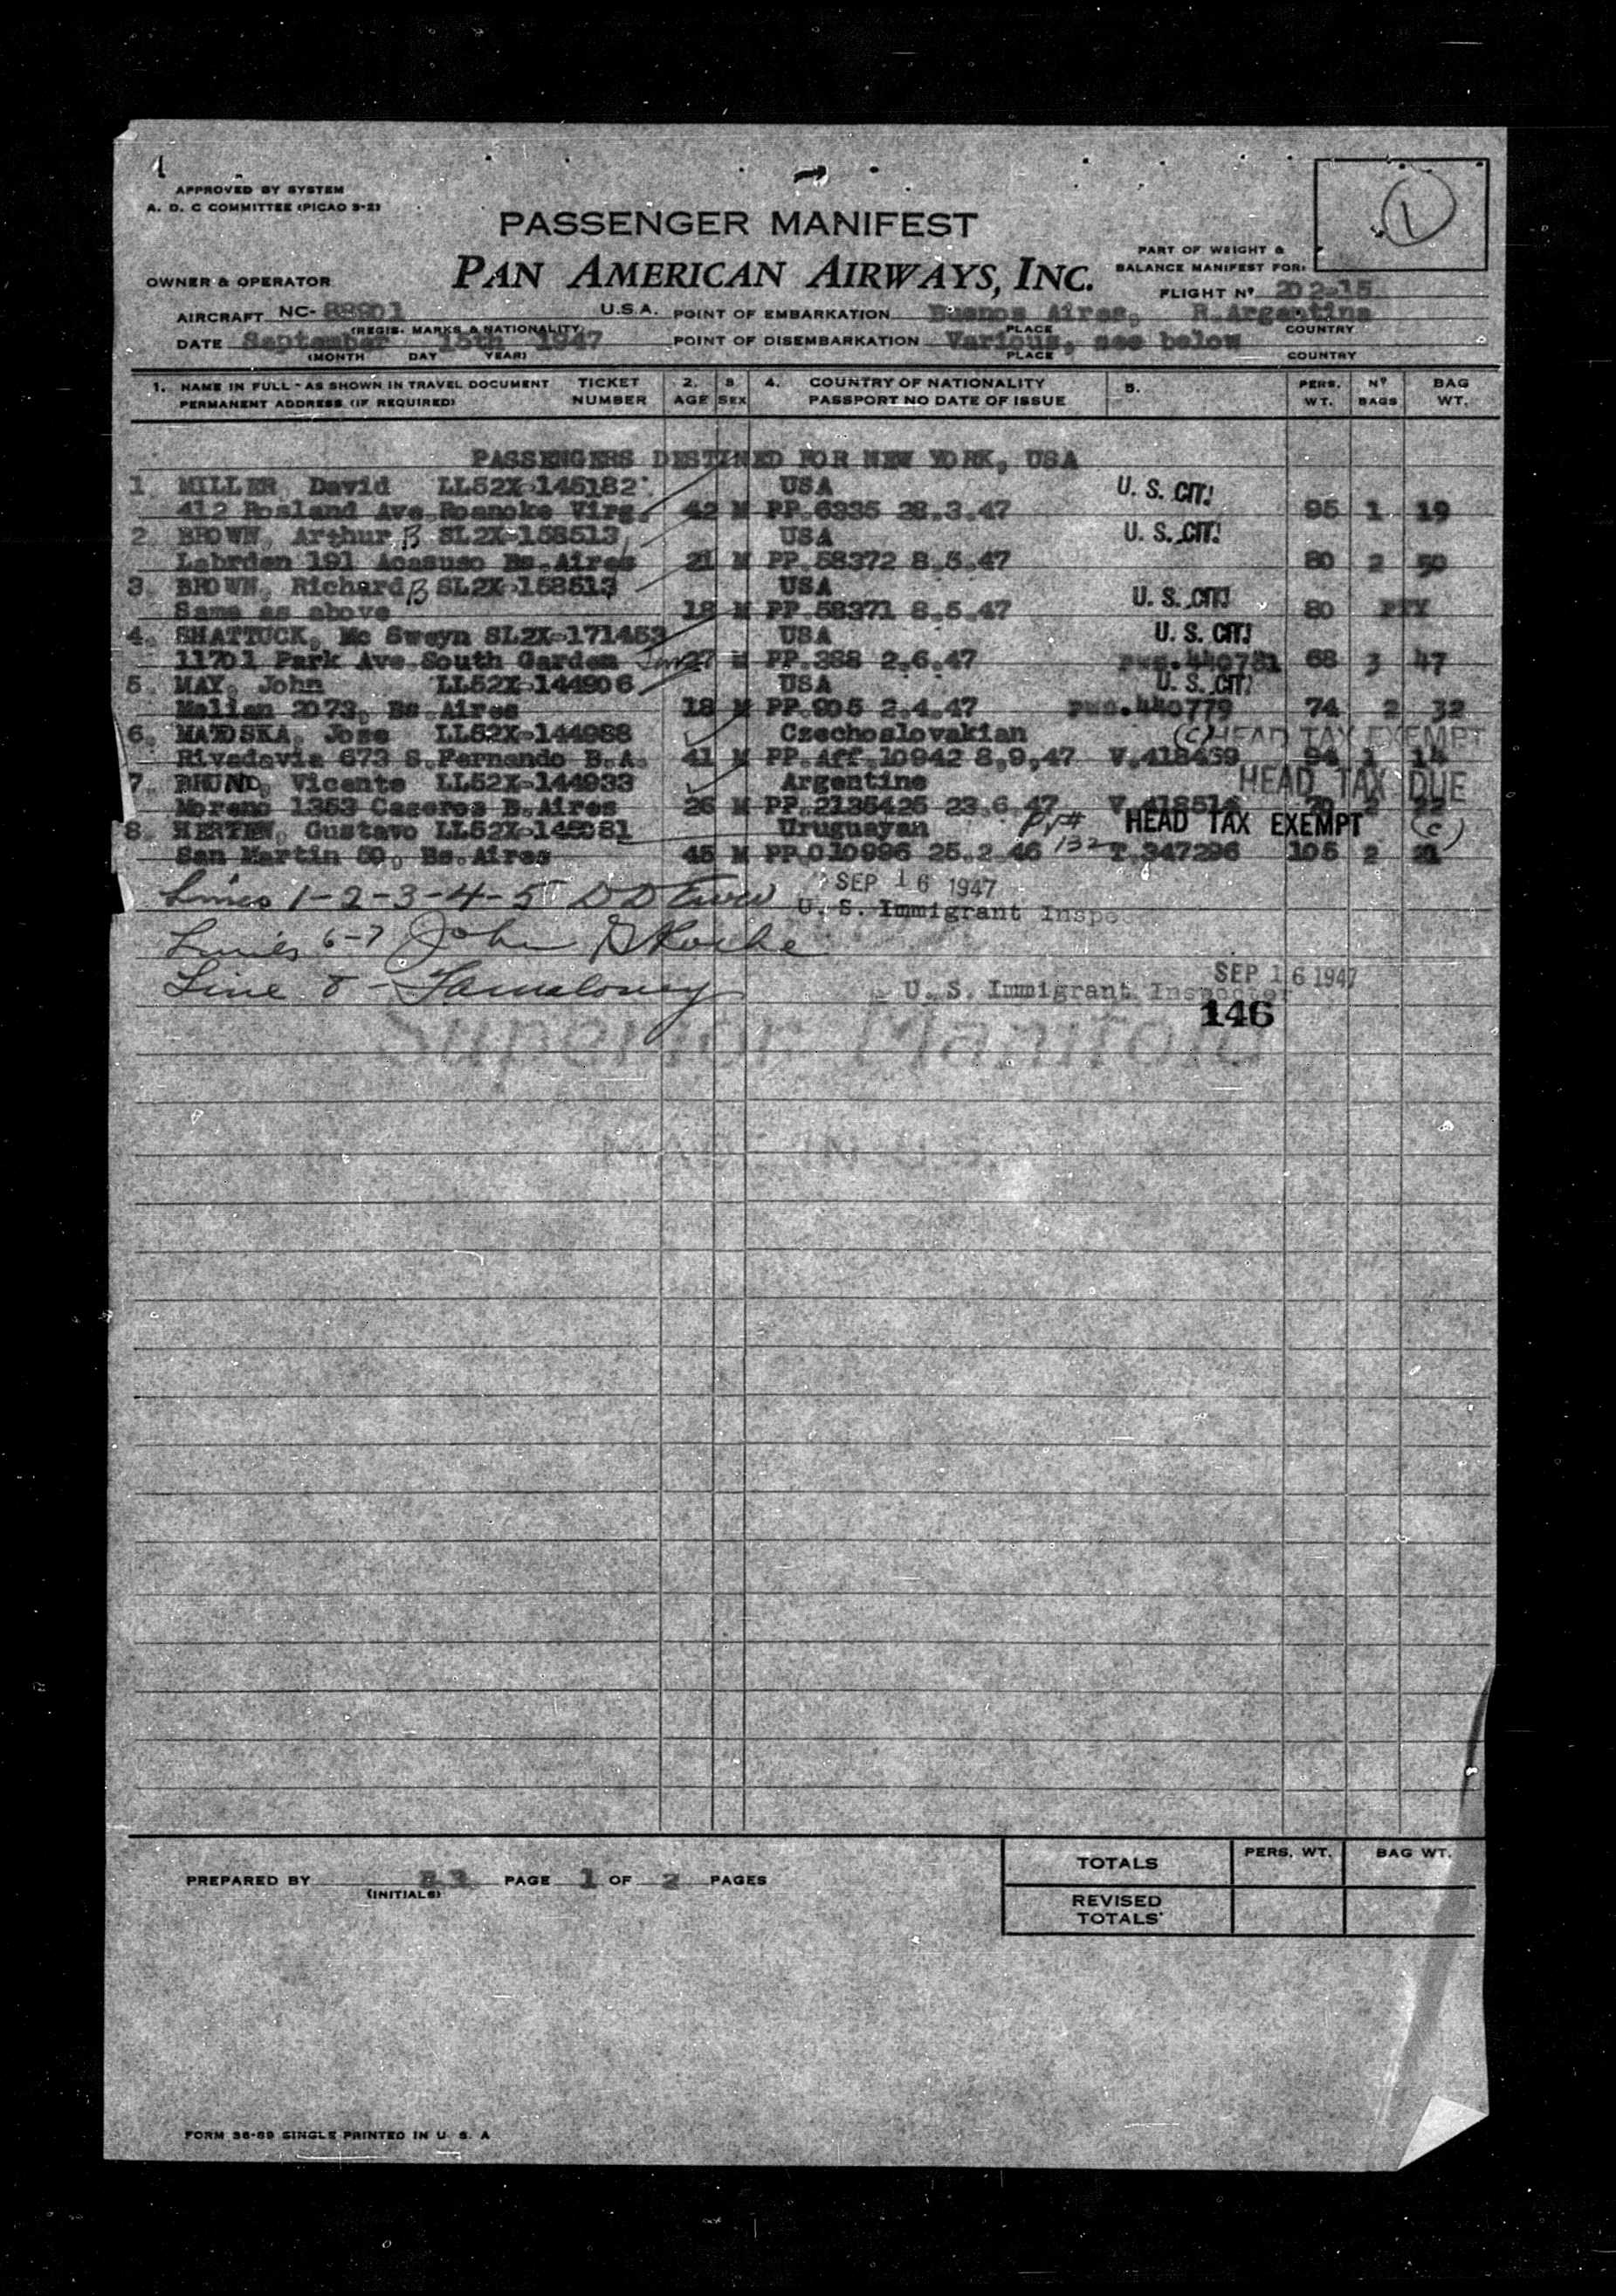 APPROVED BY SYSTEM
A. D. C COMMITTEE (PICAO 5-2)
1
PASSENGER MANIFEST
OWNER & OPERATOR PAN AMERICAN AIRWAYS, INC.
PART OF WEIGHT &
BALANCE MANIFEST FOR:
FLIGHT Nº 202-15
AIRCRAFT NC- 88901 U.S.A. POINT OF EMBARKATION Buenos Aires, R.Argentina
(REGIS. MARKS & NATIONALITY) PLACE COUNTRY
DATE September 15th 1947 POINT OF DISEMBARKATION Various, see below
(MONTH DAY YEAR) PLACE COUNTRY
1. NAME IN FULL - AS SHOWN IN TRAVEL DOCUMENT TICKET 2. 3 4. COUNTRY OF NATIONALITY 5. PERS. Nº BAG
PERMANENT ADDRESS (IF REQUIRED) NUMBER AGE SEX PASSPORT NO DATE OF ISSUE WT. BAGS WT.
PASSENGERS DESTINED FOR NEW YORK, USA
1. MILLER, David LL52X-145182 USA U. S. CIT.
412 Rosland Ave Roanoke Virg. 42 M PP.6335 28.3.47 95 1 19
2. BROWN, Arthur B SL2X-158513 USA U. S. CIT.
Labrden 191 Acasuso Bs.Aires 21 M PP.58372 8.5.47 80 2 50
3. BROWN, Richard B SL2X-158513 USA U. S. CIT.
Same as above 18 M PP.58371 8.5.47 80
4. SHATTUCK, Mc Sweyn SL2X-171453 USA U. S. CIT.
11701 Park Ave South Garden 27 M PP.388 2.6.47 440781 68 3 47
5. MAY, John LL52X-144906 USA U. S. CIT.
Melian 2073, Bs.Aires 18 M PP.905 2.4.47 440779 74 2 32
6. MATOSKA, Jose LL52X-144988 Czechoslovakian (C) HEAD TAX EXEMPT
Rivadavia 673 S.Fernando B.A. 41 M PP.Aff.10942 8,9,47 V.418459 94 1 14
7. BRUND, Vicente LL52X-144933 Argentine HEAD TAX DUE
Moreno 1353 Caseros B.Aires 26 M PP.2135425 23.6.47 V.418514 70 2 22
8. HERTEN, Gustavo LL52X-145081 Uruguayan HEAD TAX EXEMPT (C)
San Martin 50, Bs.Aires 45 M PP.010996 25.2.46 132 T.347296 105 2 21
Lines 1-2-3-4-5 SEP 16 1947
U. S. Immigrant Inspe
Lines 6-7 John G Roche
Line 8 - SEP 16 1947
U. S. Immigrant Inspector
146
Superior Manifold
MADE IN U.S.
PREPARED BY PAGE 1 OF 2 PAGES
(INITIALS)
TOTALS PERS. WT. BAG WT.
REVISED
TOTALS
FORM 36-89 SINGLE PRINTED IN U. S. A